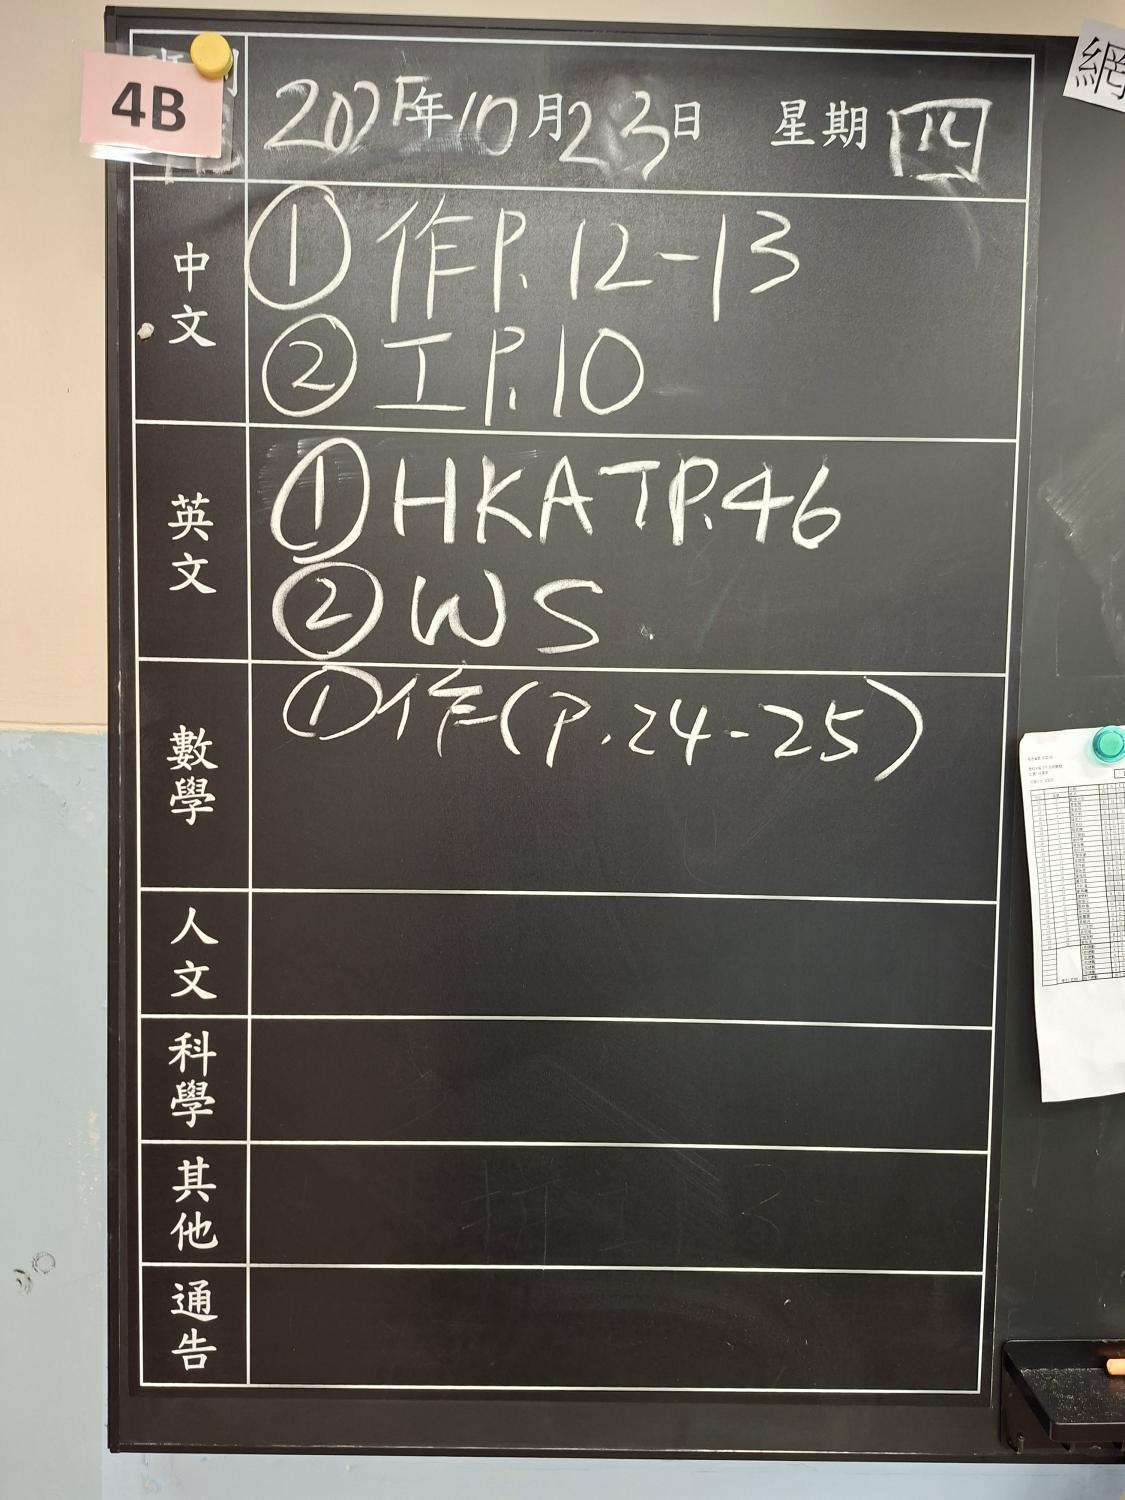 4B
2025年10月23日 星期四
中文
① 作P.12-13
② 工P.10
英文
① HKATP.46
② WS
數學
① 作(P.24-25)
人文
科學
其他
通告
網